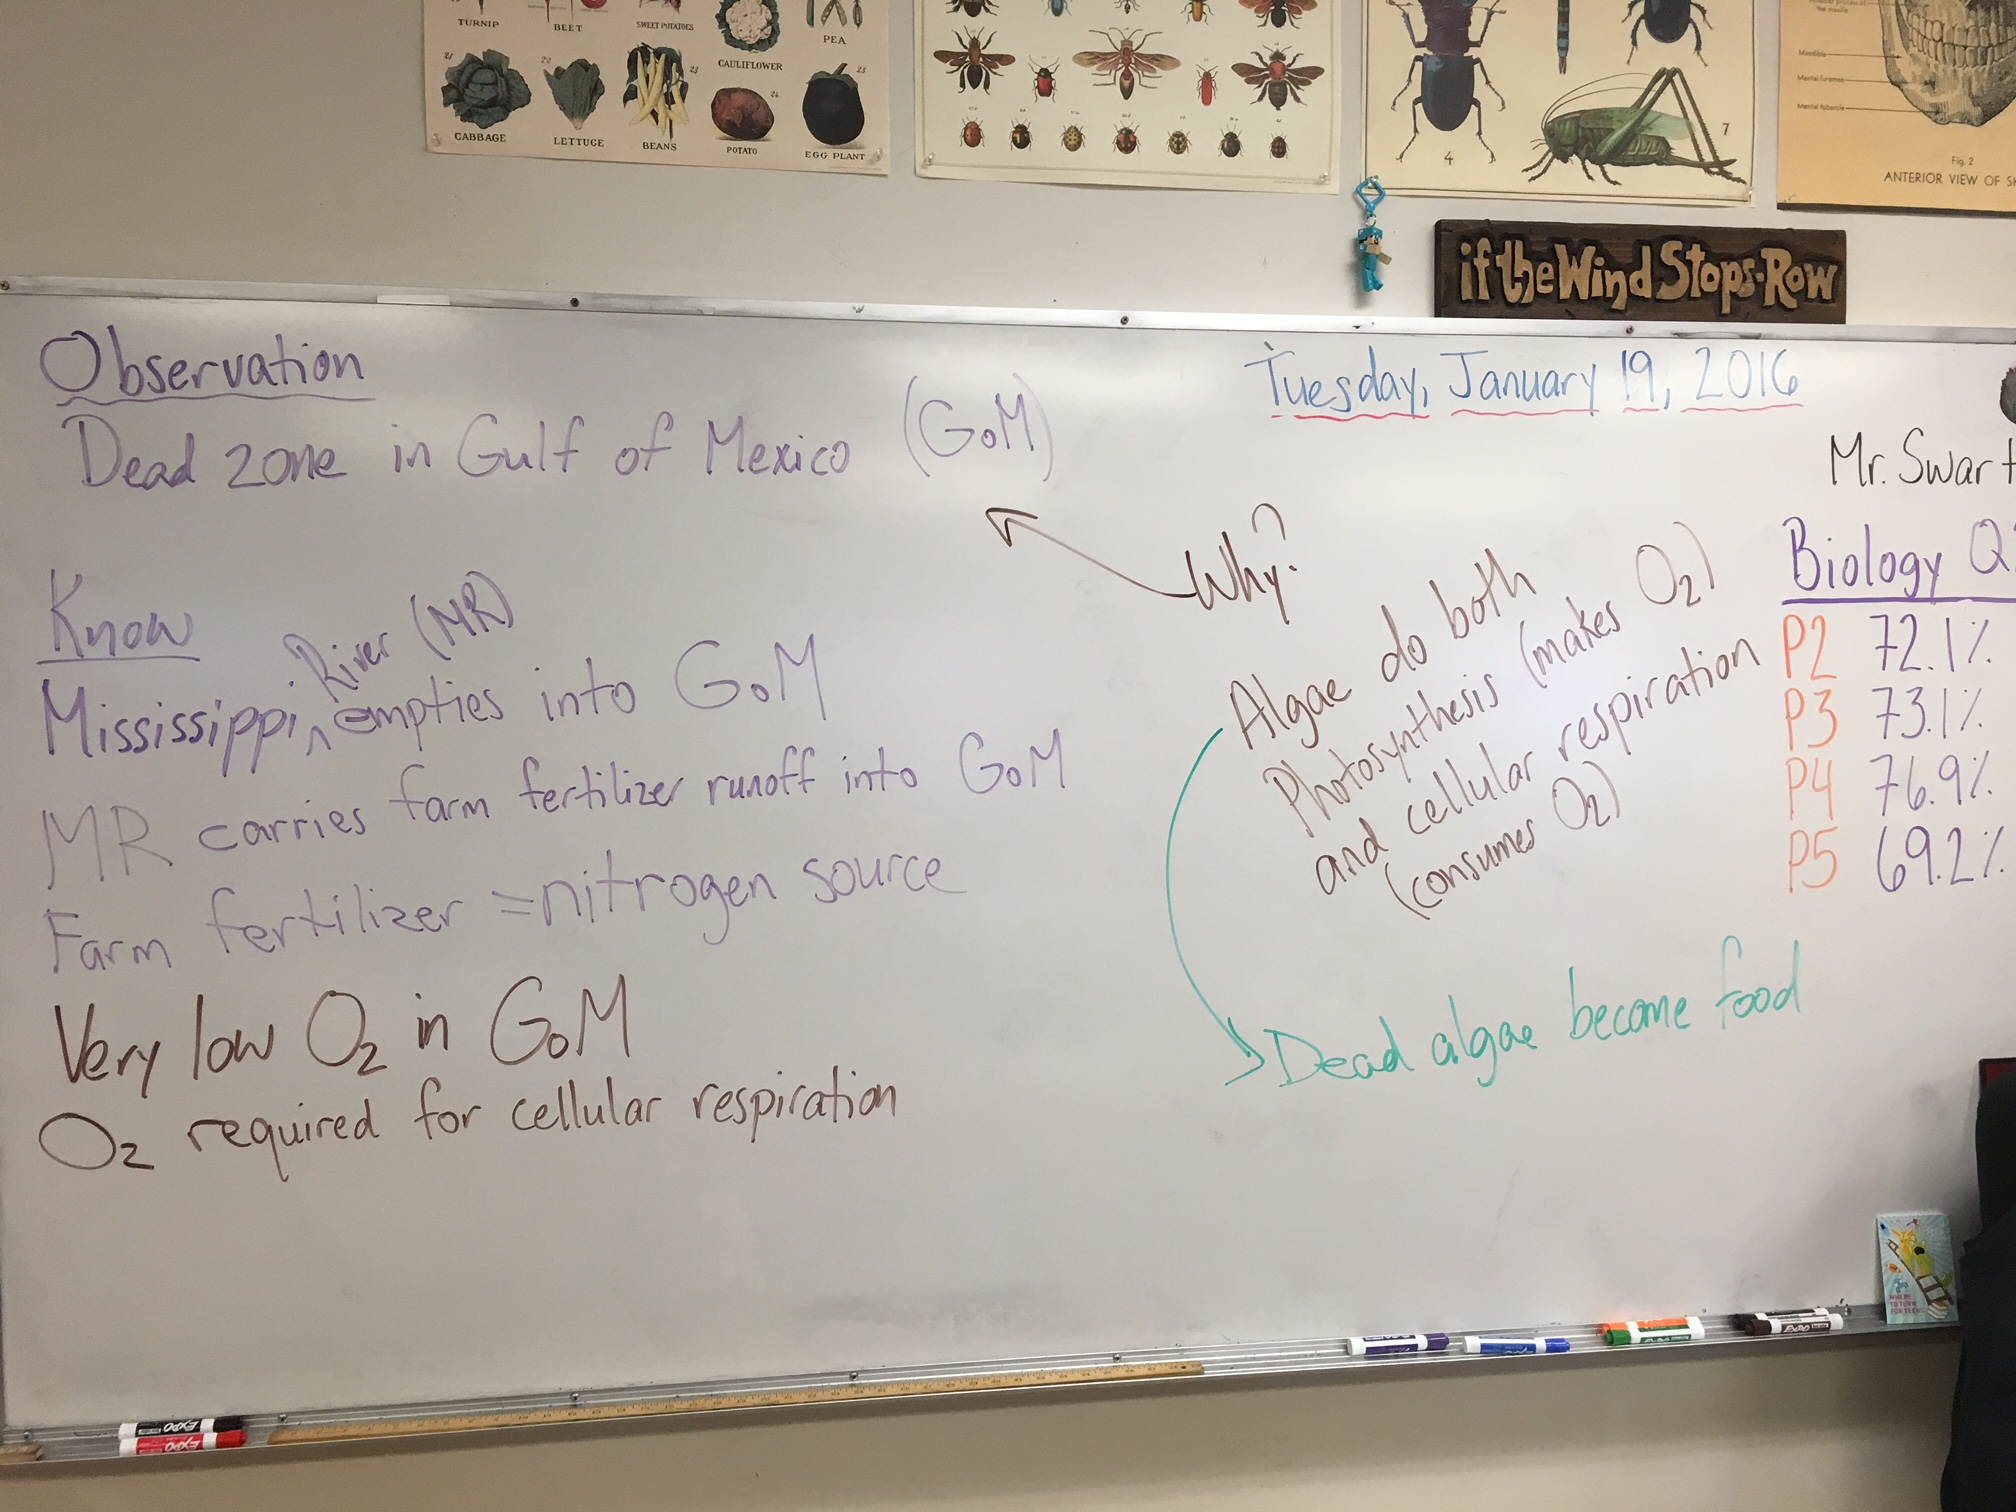 TURNIP
BEET
SWEET POTATOES
CAULIFLOWER
PEA
21
22
23
24
25
CABBAGE
LETTUCE
BEANS
POTATO
EGG PLANT
4
7
Mandible
Mental foramen
Mental tubercle
Fig. 2
ANTERIOR VIEW OF
if the Wind Stops-Row
Observation
Dead zone in Gulf of Mexico (GoM)
Know
River (MR)
Mississippi ^ empties into GoM
MR carries farm fertilizer runoff into GoM
Farm fertilizer = nitrogen source
Very low O2 in GoM
O2 required for cellular respiration
Tuesday, January 19, 2016
Why?
Algae do both
Photosynthesis (makes O2)
and cellular respiration
(consumes O2)
Dead algae become food
Mr. Swart
Biology Q
P2 72.1%
P3 73.1%
P4 76.9%
P5 69.2%
WHERE
TO TURN
FOR TEENS
EXPO
EXPO
EXPO